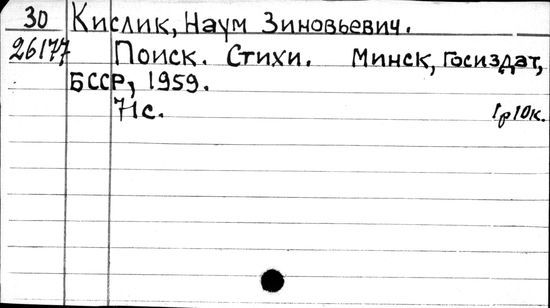 30 Кислик, Наум Зиновьевич.
26177 Поиск. Стихи. Минск, Госиздат,
БССР, 1959.
71с. 1р10к.